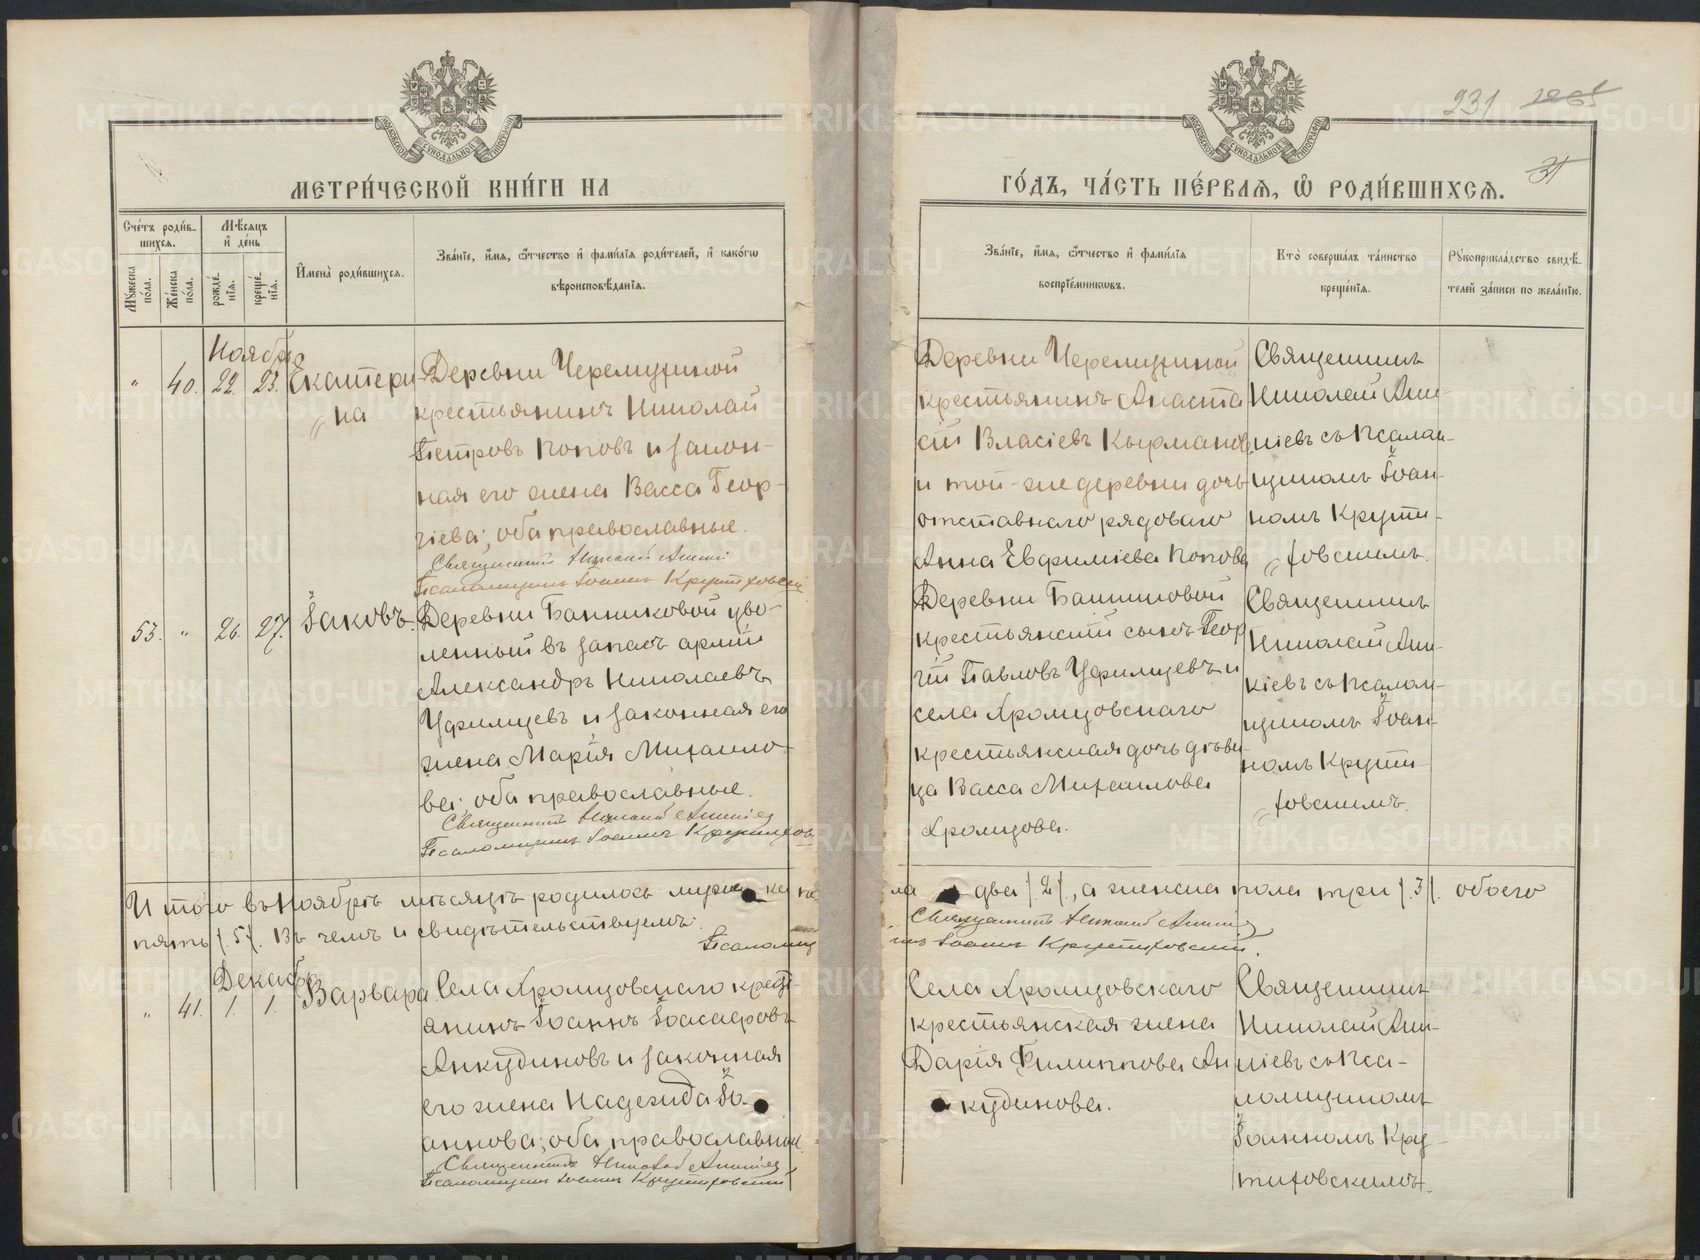 231
31
МЕТРИ́ЧЕСКОЙ КНИ́ГИ НА
ГО́ДЪ, ЧА́СТЬ ПЕ́РВАЯ, Ѡ҆ РОДИ́ВШИХСЯ.
Сче́тъ роди́в-
шихся.
Мѣ́сяцъ
и҆ де́нь
Му́жеска
по́ла.
Же́нска
по́ла.
рожде́-
нїя.
креще́-
нїя.
И҆мена̀ роди́вшихся.
Зва́нїе, и҆́мя, ѻ҆́тчество и҆ фами́лїя роди́телей, и҆ како́гѡ
вѣроисповѣ́данїя.
Зва́нїе, и҆́мя, ѻ҆́тчество и҆ фами́лїя
воспрїе́мникѡвъ.
Кто̀ соверша́лъ та́инство
креще́нїя.
Рꙋкоприкла́дство свидѣ́-
телей за́писи по жела́нїю.
Ноябрь
" 40. 22. 23. Екатери-
на
Деревни Черемухиной
крестьянинъ Николай
Петровъ Поповъ и закон-
ная его жена Васса Геор-
гіева; оба православные.
Священникъ Николай
Псаломщикъ Іоаннъ Крутиховскій
Деревни Черемухиной
крестьянинъ Анаста
сій Власіевъ
и той-же деревни дочь
отставнаго рядоваго
Анна Евфиміева Попова
Священникъ
Николай
съ псалом-
щикомъ Іоан-
номъ Крути-
ховскимъ.
53. " 26. 27. Іаковъ.
Деревни Банниковой уво-
ленный въ запасъ арміи
Александръ Николаевъ
Уфимцевъ и законная его
жена Марія Михаило-
ва; оба православные.
Священникъ Николай
Псаломщикъ Іоаннъ Крутихов
Деревни Банниковой
крестьянскій сынъ Геор
гій Павловъ Уфимцевъ и
села Хромцовскаго
крестьянская дочь дѣви-
ца Васса Михаилова
Хромцова.
Священникъ
Николай
съ псалом-
щикомъ Іоан-
номъ Крути-
ховскимъ.
Итого въ Ноябрѣ мѣсяцѣ родилось мужеска по
ла два (2), а женска пола три (3). обоего
пять (5). Въ чемъ и свидѣтельствуемъ:
Священникъ Николай
Псаломщ
икъ Іоаннъ Крутиховскій.
Декабрь
" 41. 1. 1. Варвара
Села Хромцовскаго крест-
янинъ Іоаннъ Іоасафовъ
Анкудиновъ и законная
его жена Надежда Іо-
аннова; оба православные.
Священникъ Николай
Псаломщикъ Іоаннъ Крутиховскій
Села Хромцовскаго
крестьянская жена
Дарія Филиппова Ан
кудинова.
Священникъ
Николай
съ пса-
ломщикомъ
Іоанномъ Кру-
тиховскимъ.